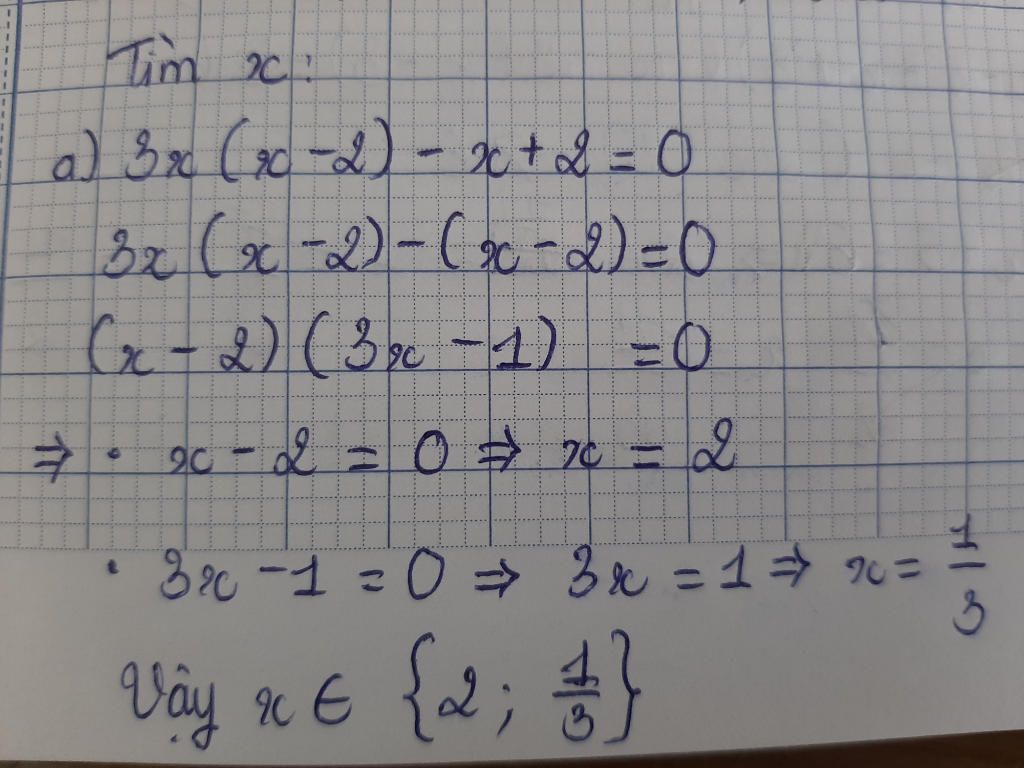 Tìm x:
a) 3x (x - 2) - x + 2 = 0
3x (x - 2) - (x - 2) = 0
(x - 2) (3x - 1) = 0
⇒ • x - 2 = 0 ⇒ x = 2
• 3x - 1 = 0 ⇒ 3x = 1 ⇒ x = 1/3
Vậy x ∈ {2; 1/3}